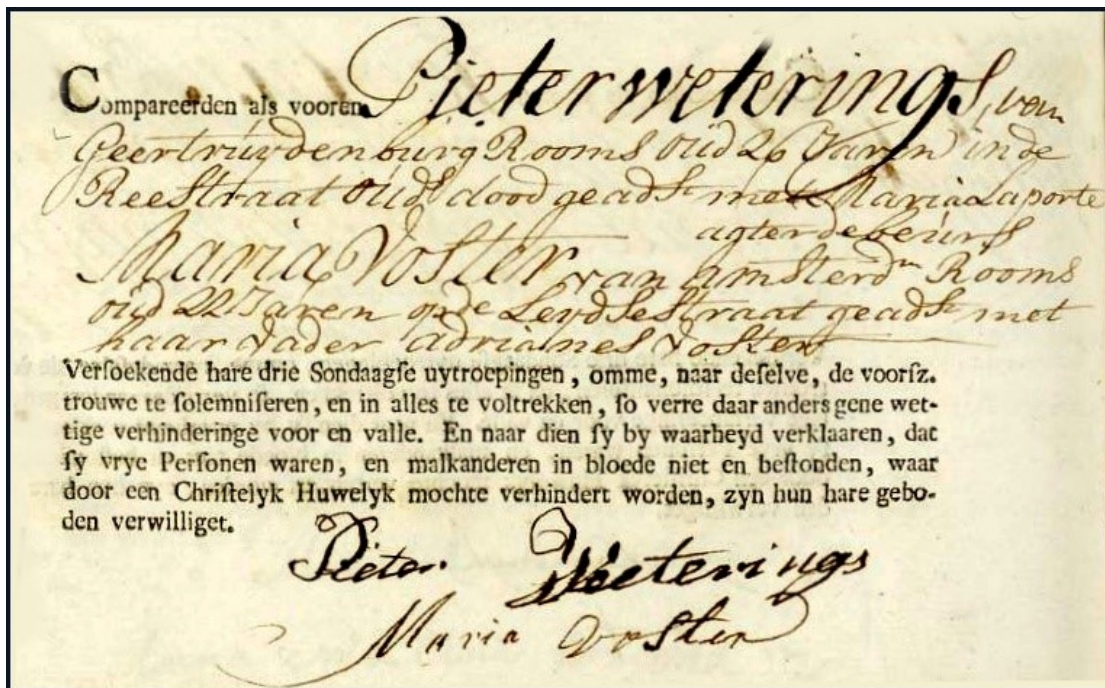 Compareerden als vooren Pieter weterings, van
Geertruydenburg Rooms oud 26 Jaren in de
Reestraat ouds dood geadst met Maria Laporte
agter de beurs
Maria Voster van amsterdm Rooms
oud 22 Jaren op de Leydsestraat geadst met
haar vader adrianes Voster
Versoekende hare drie Sondaagse uytroepingen, omme, naar deselve, de voorsz.
trouwe te solemniseren, en in alles te voltrekken, so verre daar anders gene wet-
tige verhinderinge voor en valle. En naar dien sy by waarheyd verklaaren, dat
sy vrye Personen waren, en malkanderen in bloede niet en bestonden, waar
door een Christelyk Huwelyk mochte verhindert worden, zyn hun hare gebo-
den verwilliget.
Pieter Weeterings
Maria Voster